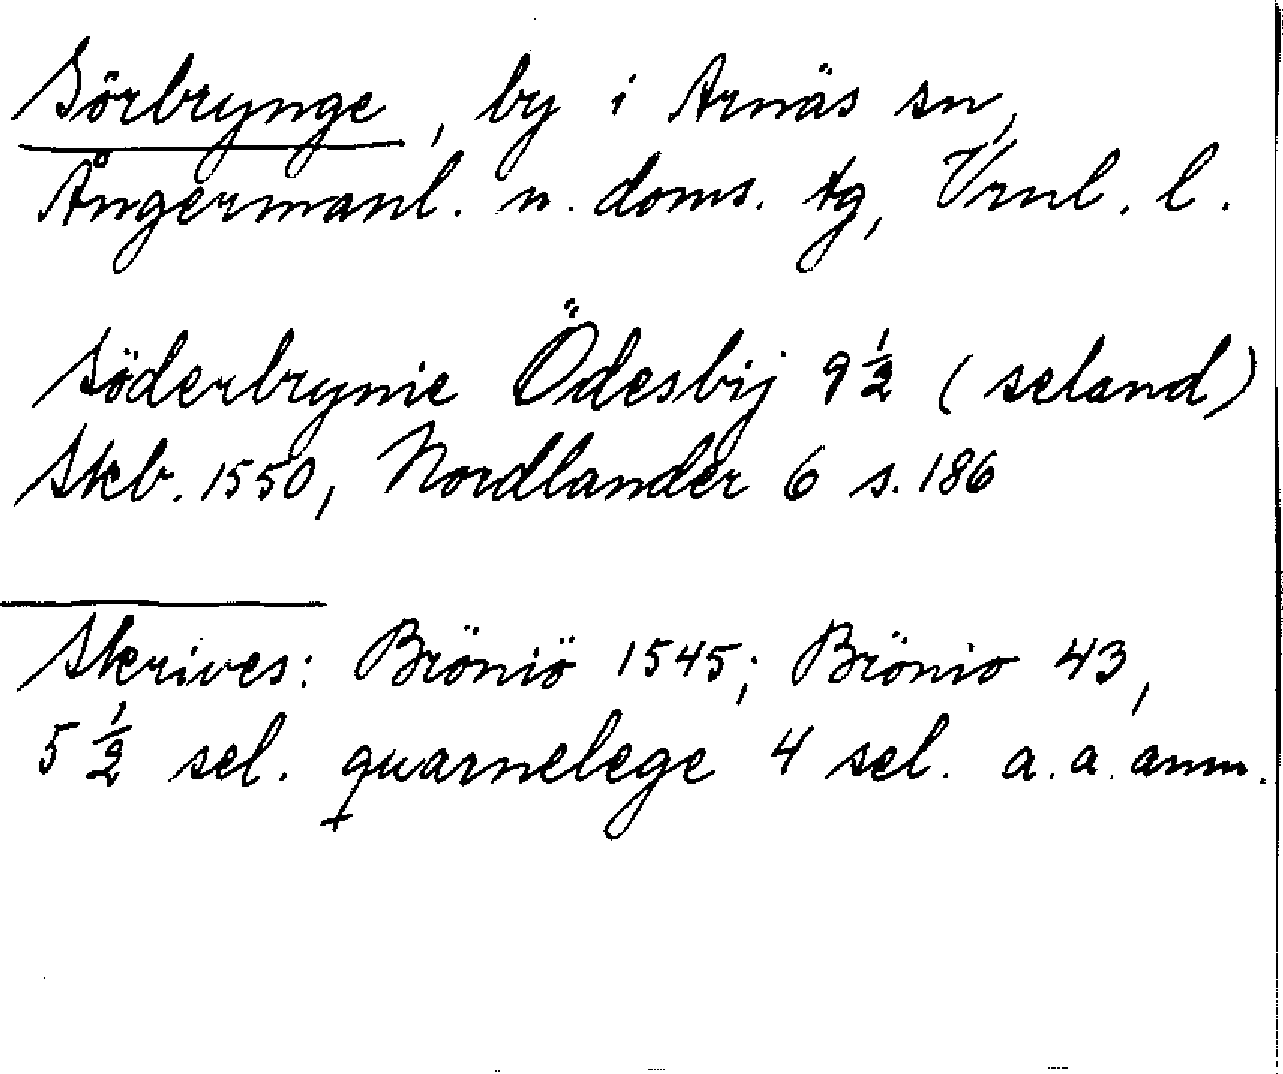 Sörbrynge, by i Arnäs sn,
Ångermanl. n. doms. tg, Vrnl. l.
Söderbrynie Ödesbij 9 1/2 (seland)
Skb. 1550, Nordlander 6 s. 186
Skrives: Bröniö 1545; Brönio 43,
5 1/2 sel. quarnelege 4 sel. a. a. anm.